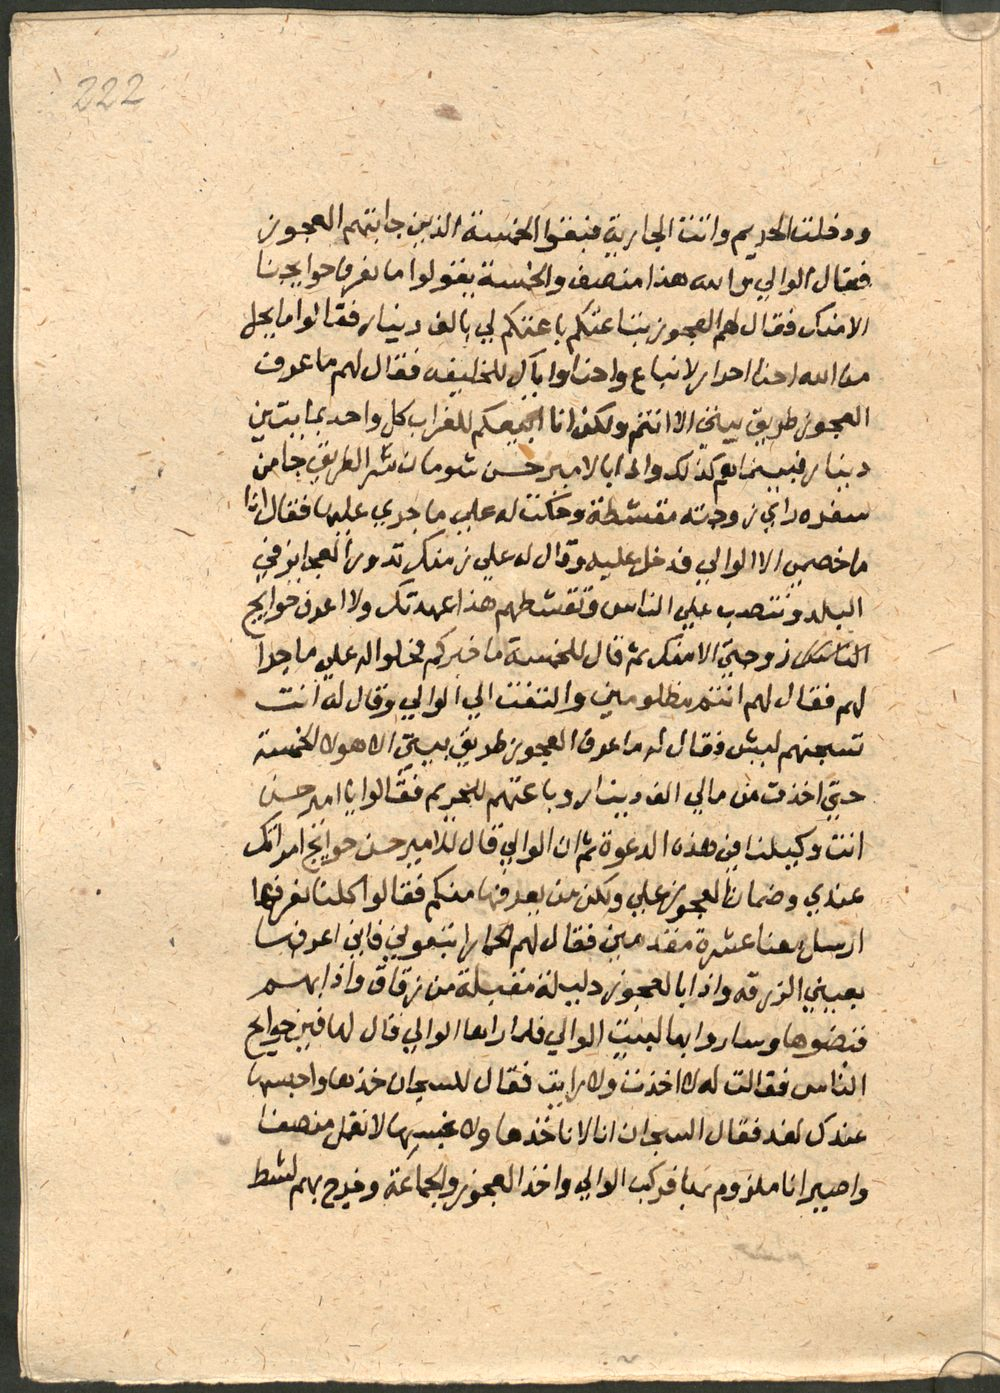 222
ودخلت الحريم واتت الجارية فبقوا الخمسة الذين جابتهم العجوز
فقال الوالي من الله هذا منصف والخمسة يقولوا ما نعرف حوايجنا
الا منك فقال لهم العجوز بتاعتكم باعتكم لي بالف دينار فقالوا ما يحل
من الله احنا احرار لا نباع واحنا واياك للخليفه فقال لهم ما عرف
العجوز طريق بيتي الا انتم ولكن انا ابيعكم للغراب كل واحد بمايتين
دينار فبينما هم كذلك واذا بالامير حسن شومان شر الطريق جا من
سفره راي زوجته مقشطة وحكت له علي ما جري عليها فقال انا
ما خصمي الا الوالي فدخل عليه وقال له علي زمنك تدور العجايز في
البلد وتنصب علي الناس وتقشطهم هذا عهدتك ولا اعرف حوايج
زوجتي الا منك ثم قال للخمسة ما خبركم فحكوا له علي ما جرا
لهم فقال لهم انتم مظلومين والتفت الي الوالي وقال له انت
تسجنهم ليش فقال له ما عرف العجوز طريق بيتي الا هولا الخمسة
حتي اخذت من مالي الف دينار وباعتهم للحريم فقالوا يا امير حسن
انت وكيلنا في هذه الدعوة ثم ان الوالي قال للامير حسن حوايج امراتك
عندي وضمان العجوز علي ولكن من يعرفها منكم فقالوا كلنا نعرفها
ارسل معنا عشرة مقدمين فقال لهم الحمار اتبعوني فاني اعرفها
بعييني الزرقه واذا بالعجوز دليلة مقبلة من زقاق واذا بهم
قبضوها وساروا بها لبيت الوالي فلما راها الوالي قال لها فين حوايج
الناس فقالت له لا اخذت ولا رايت فقال للسجان خذها واحبسها
عندك لغد فقال السجان انا لا ناخذها ولا نحبسها لا تعمل منصفا
واصير انا ملزوم بها فركب الوالي واخذ العجوز والجماعة وخرج بهم لشط